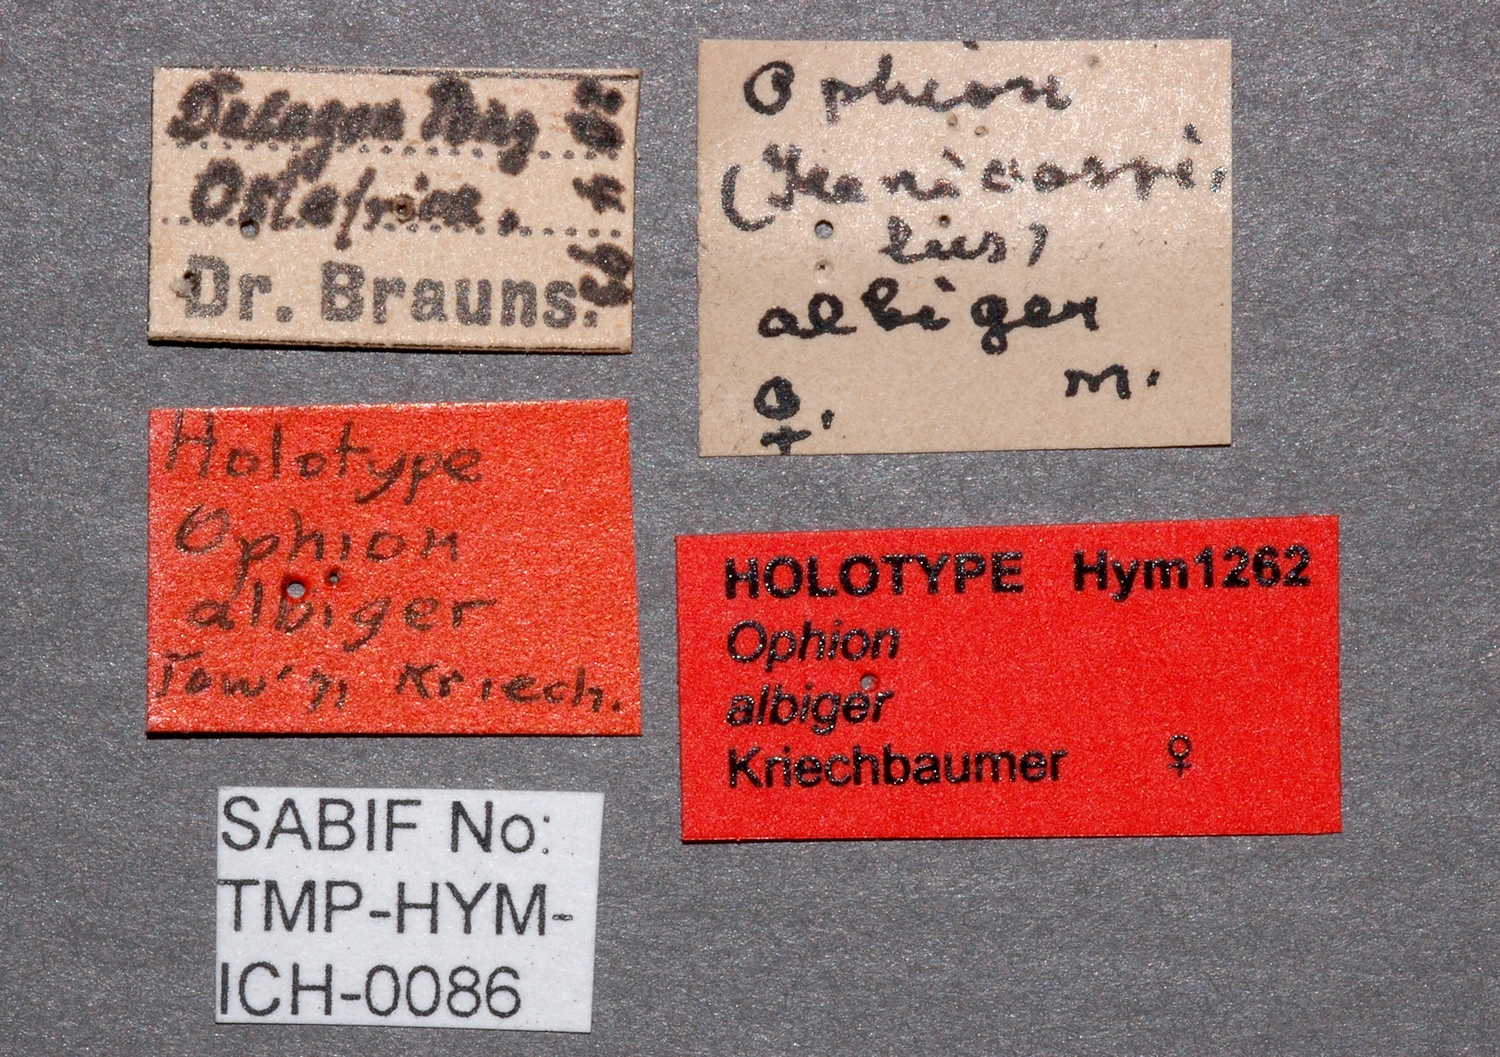 Delagoa Bay
Ostafrica.
Dr. Brauns.
Ophion
(Henicospi-
lus)
albiger
m.
♀.
Holotype
Ophion
albiger
Tow'n, Kriech.
HOLOTYPE Hym1262
Ophion
albiger
Kriechbaumer ♀
SABIF No:
TMP-HYM-
ICH-0086